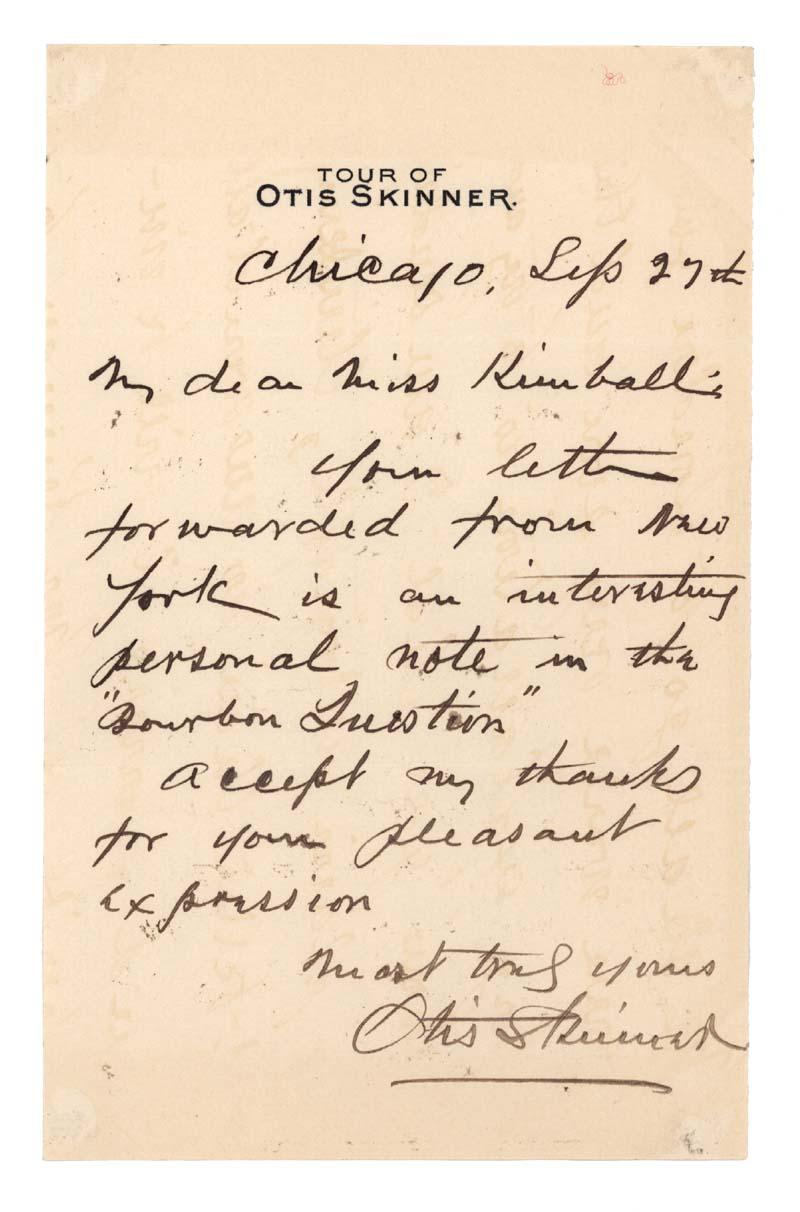 TOUR OF
OTIS SKINNER.
Chicago, Sep 27th
My dear Miss Kimball:
Your letter
forwarded from New
York is an interesting
personal note in the
"Bourbon Question"
Accept my thanks
for your pleasant
expression
Most truly yours
Otis Skinner